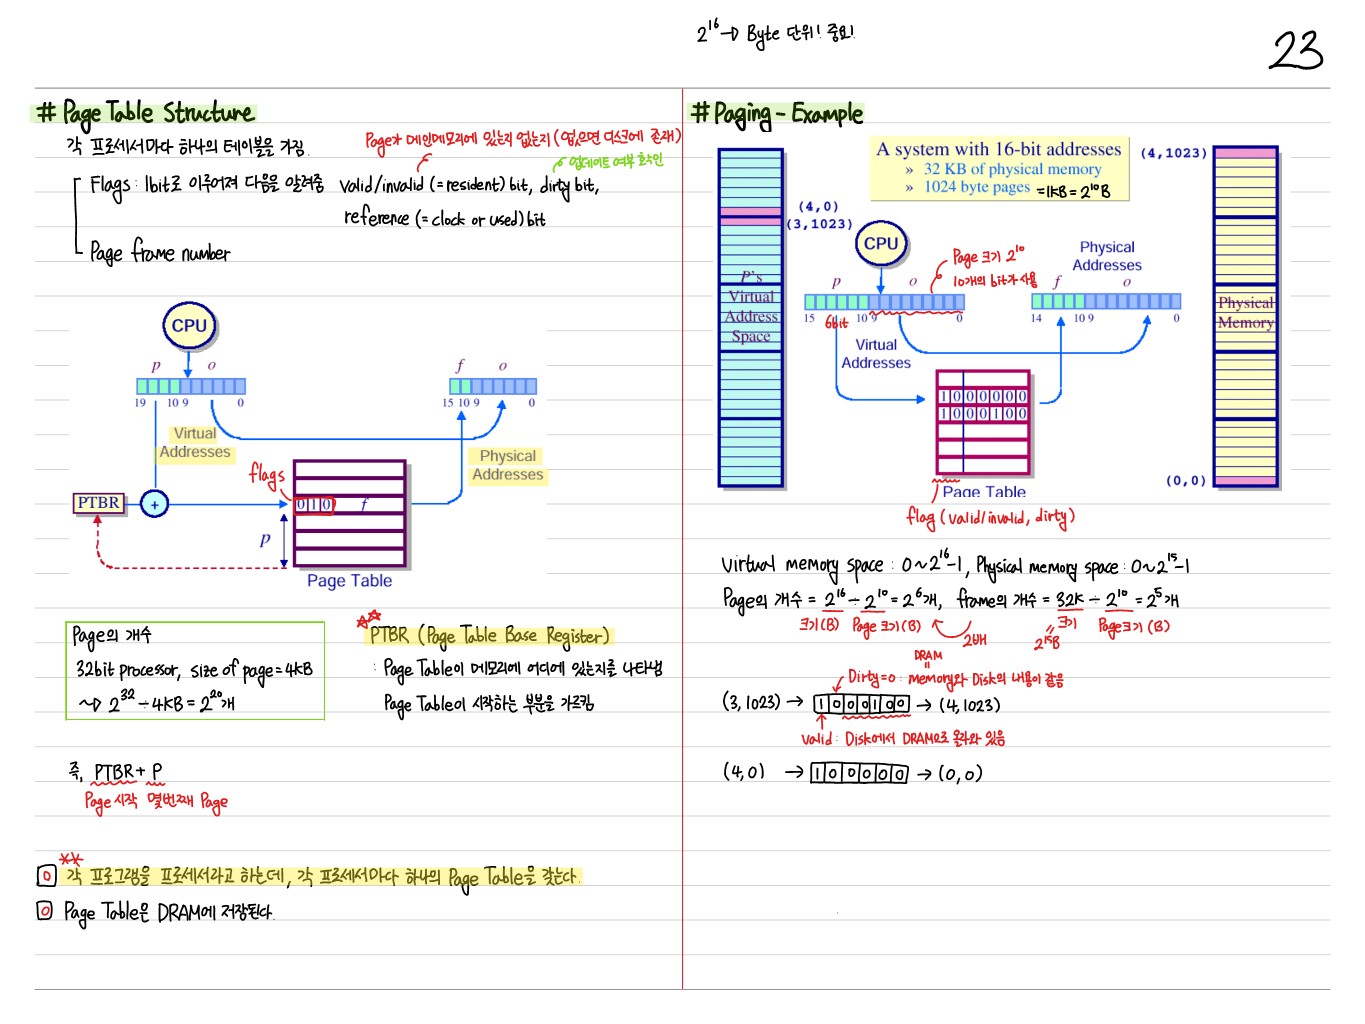 2^16 → Byte 단위! 중요!
23
# Page Table Structure
각 프로세서마다 하나의 테이블을 가짐.
Page가 메인메모리에 있는지 없는지 (없으면 디스크에 존재)
업데이트 여부 확인
Flags : 1bit로 이루어져 다음을 알려줌
valid/invalid (= resident) bit, dirty bit,
reference (= clock or used) bit
Page frame number
CPU
p o
19 10 9 0
Virtual
Addresses
f o
15 10 9 0
Physical
Addresses
flags
PTBR
+
0 1 0 f
p
Page Table
Page의 개수
32bit processor, size of page = 4KB
~> 2^32 ÷ 4KB = 2^20개
PTBR (Page Table Base Register)
: Page Table이 메모리에 어디에 있는지를 나타냄
Page Table이 시작하는 부분을 가르킴
즉, PTBR + P
Page 시작 몇번째 Page
각 프로그램을 프로세서라고 하는데, 각 프로세서마다 하나의 Page Table을 갖는다.
Page Table은 DRAM에 저장된다.
# Paging - Example
A system with 16-bit addresses
» 32 KB of physical memory
» 1024 byte pages = 1KB = 2^10 B
(4,1023)
(4,0)
(3,1023)
CPU
Page 크기 2^10
10개의 bit가 사용
Physical
Addresses
p o
f o
15 10 9 0
6bit
14 10 9 0
P's
Virtual
Address
Space
Physical
Memory
Virtual
Addresses
1 0 0 0 0 0 0
1 0 0 0 1 0 0
(0,0)
Page Table
flag (valid/invalid, dirty)
Virtual memory space : 0 ~ 2^16-1, Physical memory space : 0 ~ 2^15-1
Page의 개수 = 2^16 ÷ 2^10 = 2^6개, frame의 개수 = 32K ÷ 2^10 = 2^5개
크기(B) Page 크기(B) 2배 크기 Page크기 (B)
= 2^15 B
DRAM
=
Dirty=0 : memory와 Disk의 내용이 같음
(3,1023) → 1 0 0 0 1 0 0 → (4,1023)
valid : Disk에서 DRAM으로 올라와 있음
(4,0) → 1 0 0 0 0 0 → (0,0)